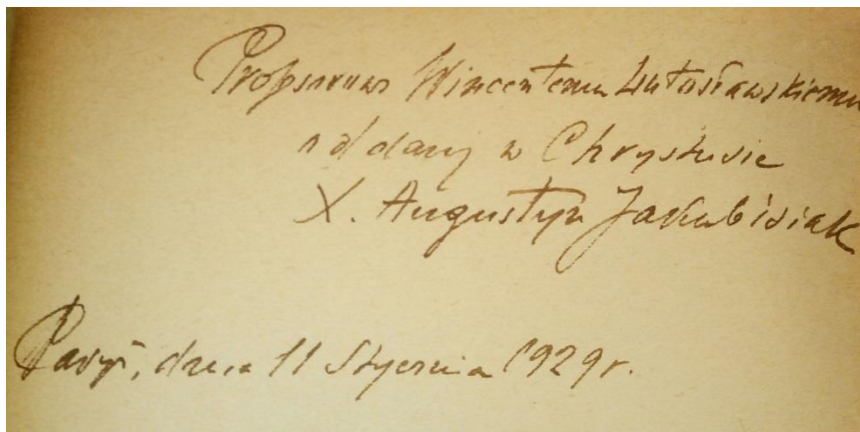 Profesorowi Wincentemu Lutosławskiemu
oddany w Chrystusie
X. Augustyn Jakubisiak
Paryż, dnia 11 Stycznia 1929 r.